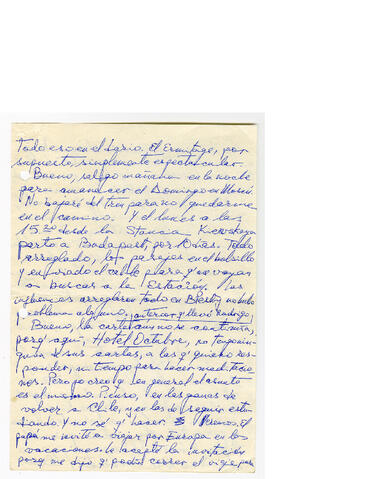 Todo eso en el diario. El Ermitage, por
supuesto, simplemente espectacular.
Bueno, salgo mañana en la noche
para amanecer el Domingo en Moscú.
No bajaré del tren para no quedarme
en el camino. Y el lunes a las
15.20 desde la Stancia Kievskaya
parto a Budapest, por 2 días. Todo
arreglado, los pasajes en el bolsillo
y enviado el cable para q' me vayan
a buscar a la Estación. Tus
influencias arreglaron todo en no hubo
problema alguno,
Bueno, la carta no se continúa,
porq' aquí, Hotel Octubre, no tengo
a sus cartas, a las q' quiero res-
ponder, ni tiempo para hacer meditacio
nes. Pero yo creo q' en general el asunto
es el mismo. Pienso, en las ganas de
volver a Chile, y en las de seguir estu-
diando. Y no sé q' hacer. El
papá me invitó a viajar por Europa en las
vacaciones. Le acepté la invitación
porq' me dijo q' podía correr el viaje para